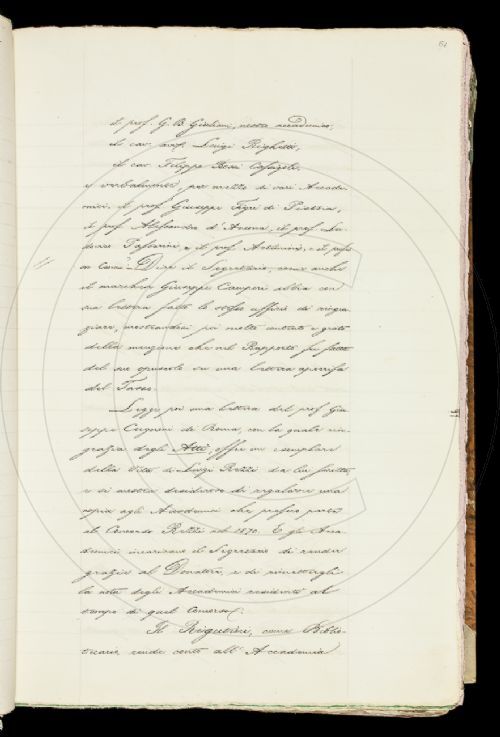 61
il prof. G. B. Giuliani, nostro accademico,
il cav. prof. Luigi Righetti,
il cav. Filippo
e verbalmente, per mezzo di vari Accade-
mici, il prof. Giuseppe Tigri di Pistoia,
il prof. Alessandro d'Ancona, il prof.
e il prof. e il
Dice il Segretario, come anche
il marchese Giuseppe Campori abbia con
sua lettera fatto lo stesso ufficio di ringra-
ziare, mostrandosi poi molto contento e grato
della menzione che nel Rapporto fu fatta
del suo opuscolo su una lettera apocrifa
del Tasso.
Legge poi una lettera del prof. Giu-
seppe Cugnoni di Roma, con la quale rin-
grazia degli Atti, offre un esemplare
della Vita di Luigi Rezzi da lui scritta,
e si mostra desideroso di regalarne una
copia agli Accademici che presero parte
al Concorso Rezzi del 1870. E gli Acca-
demici incaricano il Segretario di render
grazie al Donatore, e di rimettergli
la nota degli Accademici residenti al
tempo di quel Concorso.
Il Rigutini, come Biblio-
tecario, rende conto all'Accademia